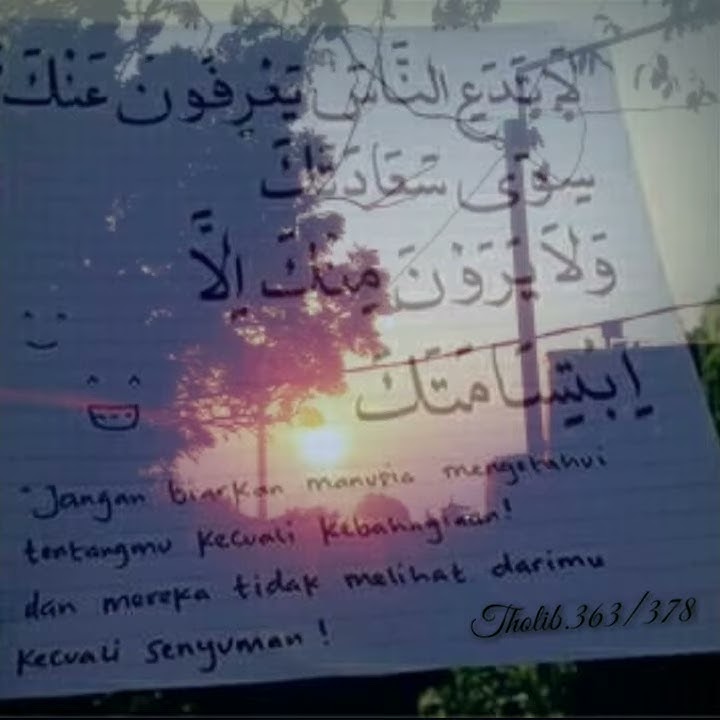 لَا يَتَدَعِ النَّاسَ يَعْرِفُونَ عَنْكَ
سِوَى سَعَادَتَكَ
وَلَا يَرَوْنَ مِنْكَ اِلَّا
اِبْتِسَامَتَكَ
"Jangan biarkan manusia mengetahui
tentangmu kecuali kebahagiaan!
dan mereka tidak melihat darimu
kecuali senyuman!
Tholib.363/378